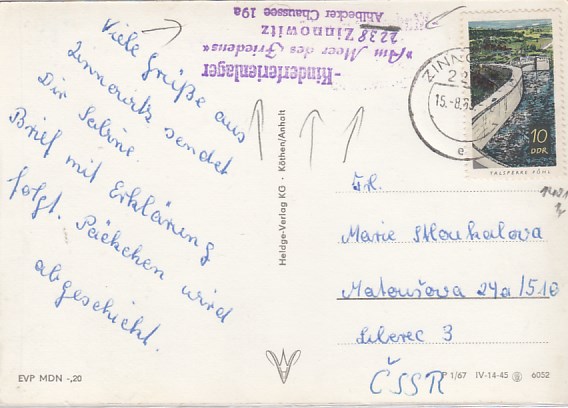 -Kinderferienlager
»Am Meer des Friedens«
2238 Zinnowitz
Ahlbecker Chaussee 19a
Viele Grüße aus
Zinnowitz sendet
Dir Sabine.
Brief mit Erklärung
folgt. Päckchen wird
abgeschickt.
ZINNO
15.-8.
e
10
DDR
TALSPERRE PÖHL
Heldge-Verlag KG · Köthen/Anhalt
Frl.
Marie
Matoušova 24a/516
Liberec 3
ČSSR
EVP MDN -,20
P 1/67 IV-14-45 6052